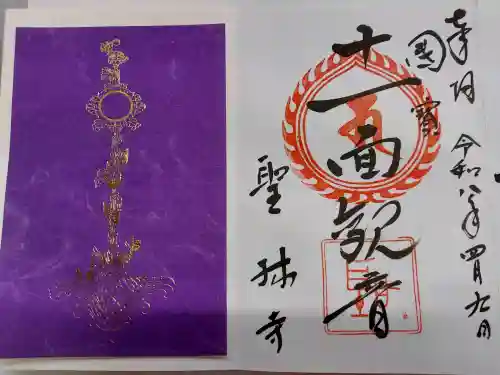 奉拝
令和八年四月九日
國寶
十一面観音
聖林寺